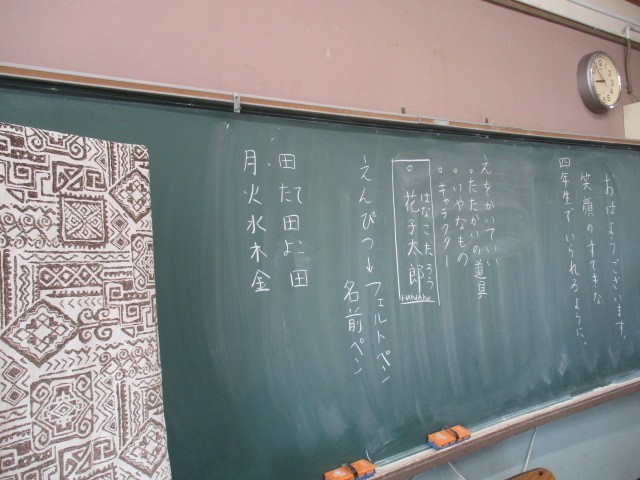 おはようございます。
笑顔のすてきな
四年生でいられるように、
えをかいていい
。たたかいの道具
。いやなもの
。キャラクター
はなこたろう
。花子太郎
HANAko
えんぴつ→フェルトペン
名前ペン
田たて田よこ田
月火水木金